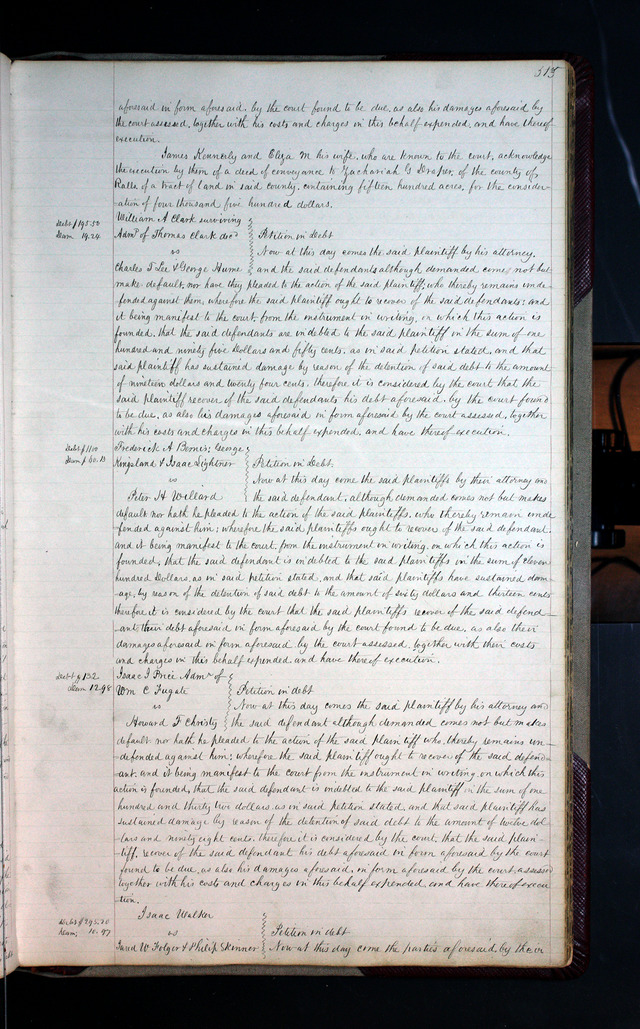 315
aforesaid in form aforesaid, by the court found to be due, as also his damages aforesaid by
the court assessed, together with his costs and charges in this behalf expended, and have thereof
execution.
James Kennerly and Eliza M his wife, who are known to the court, acknowledge
the execution by them of a deed of conveyance to Zachariah G Draper, of the county of
Ralls, of a tract of land in said county, containing fifteen hundred acres, for the consider-
ation of four thousand five hundred dollars.
William A Clark surviving
Debt $195.50
Dam 19.24
Admr of Thomas Clark decd
Petition in Debt
vs
Now at this day comes the said plaintiff by his attorney,
Charles T Lee & George Hume
and the said defendants although demanded comes not but
make default, nor have they pleaded to the action of the said plaintiff, who thereby remains unde-
fended against them, wherefore the said plaintiff ought to recover of the said defendants; and
it being manifest to the court, from the instrument in writing, on which this action is
founded, that the said defendants are indebted to the said plaintiff in the sum of one
hundred and ninety five Dollars and fifty cents, as in said petition stated, and that
said plaintiff has sustained damage by reason of the detention of said debt to the amount
of nineteen dollars and twenty four cents, therefore it is considered by the court that the
said plaintiff recover of the said defendants his debt aforesaid, by the court found
to be due, as also his damages aforesaid in form aforesaid by the court assessed, together
with his costs and charges in this behalf expended, and have thereof execution.
Debt $1100
Dam $60.13
Frederick A Bernis, George
Kingsland & Isaac Lightner
Petition in Debt
vs
Now at this day come the said plaintiffs by their attorney and
Peter H Willard
the said defendant, although demanded comes not but makes
default nor hath he pleaded to the action of the said plaintiffs, who thereby remain unde-
fended against him; wherefore the said plaintiffs ought to recover of the said defendant.
and it being manifest to the court, from the instrument in writing, on which this action is
founded, that the said defendant is indebted to the said plaintiffs in the sum of eleven
hundred Dollars, as in said petition stated, and that said plaintiffs have sustained dam-
age, by reason of the detention of said debt to the amount of sixty dollars and thirteen cents
therefore it is considered by the court that the said plaintiffs recover of the said defend-
ant their debt aforesaid in form aforesaid by the court found to be due, as also their
damages aforesaid in form aforesaid by the court assessed, together with their costs
and charges in this behalf expended and have thereof execution.
Debt $132
Dam 12.98
Isaac J Price Admr of
Wm C Fugate
Petition in debt
vs
Now at this day comes the said plaintiff by his attorney and
Howard F Christy
the said defendant although demanded comes not but makes
default nor hath he pleaded to the action of the said Plaintiff who thereby remains un-
defended against him; wherefore the said plaintiff ought to recover of the said defend-
ant, and it being manifest to the court from the instrument in writing, on which this
action is founded, that the said defendant is indebted to the said plaintiff in the sum of one
hundred and thirty two dollars, as in said petition stated, and that said plaintiff has
sustained damage by reason of the detention of said debt to the amount of twelve dol-
lars and ninety eight cents, therefore it is considered by the court, that the said plain-
tiff, recover of the said defendant his debt aforesaid in form aforesaid by the court
found to be due, as also his damages aforesaid, in form aforesaid by the court, assessed
together with his costs and charges in this behalf expended, and have thereof execu-
tion.
Isaac Walker
Debt $295.20
Dam, 10.97
vs
Petition in debt
Jared W Folger & Philip Skinner
Now at this day come the parties aforesaid by their